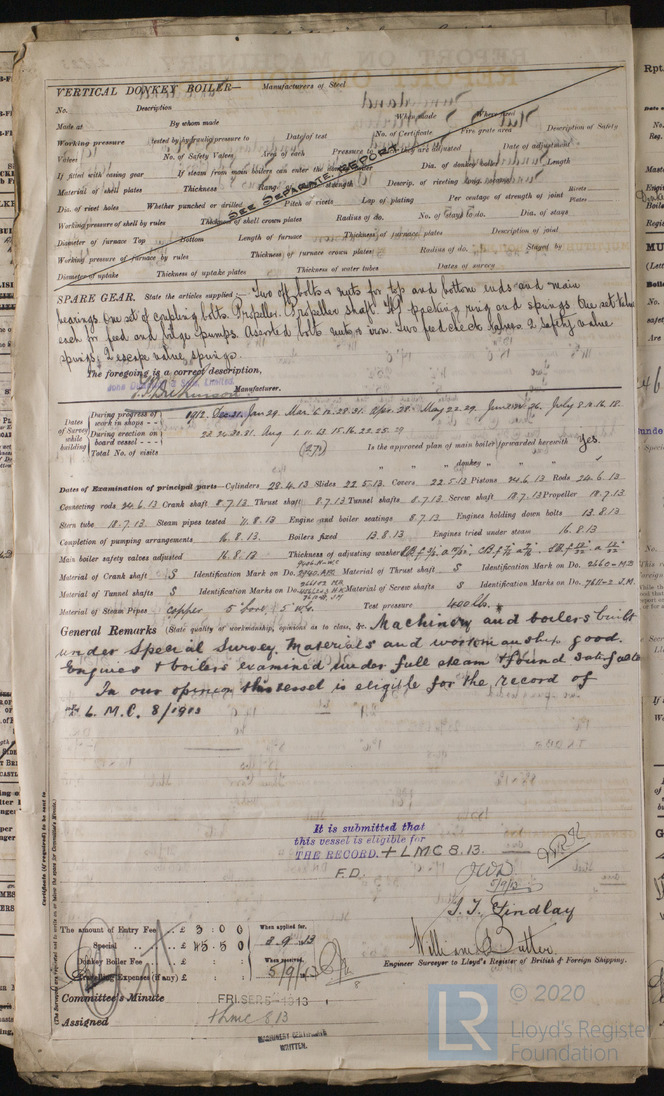 VERTICAL DONKEY BOILER— Manufacturers of Steel
No. Description
Made at By whom made When made Where fixed
Working pressure tested by hydraulic pressure to Date of test No. of Certificate Fire grate area Description of Safety
Valves No. of Safety Valves Area of each Pressure to which they are adjusted Date of adjustment
If fitted with casing gear If steam from main boilers can enter the donkey boiler Dia. of donkey boiler Length
Material of shell plates Thickness Range of tensile strength Descrip. of riveting long. seams
Dia. of rivet holes Whether punched or drilled Pitch of rivets Lap of plating Per centage of strength of joint Rivets Plates
Working pressure of shell by rules Thickness of shell crown plates Radius of do. No. of Stays to do. Dia. of stays
Diameter of furnace Top Bottom Length of furnace Thickness of furnace plates Description of joint
Working pressure of furnace by rules Thickness of furnace crown plates Radius of do. Stayed by
Diameter of uptake Thickness of uptake plates Thickness of water tubes Dates of survey
SEE SEPARATE REPORT
SPARE GEAR. State the articles supplied:— Two off bolts & nuts for top and bottom ends and main
bearings. One set of coupling bolts. Propeller. Propeller shaft. H.P. packing ring and springs. One set valves
each for feed and bilge pumps. Assorted bolts nuts & iron. Two feed check valves. 2 safety valve
springs, 2 escape valve springs.
The foregoing is a correct description,
Manufacturer.
Dates of Survey while building
During progress of work in shops - - 1912. Dec. 31. Jan 29. Mar. 6. 12. 28. 31. Apr. 28. May 22. 29. June 24. 26. July 8. 10. 16. 18.
During erection on board vessel - - - 23. 24. 30. 31. Aug 1. 11. 13. 15. 16. 22. 25. 29
Total No. of visits (27) Is the approved plan of main boiler forwarded herewith Yes.
" " " donkey " " "
Dates of Examination of principal parts—Cylinders 28.4.13 Slides 22.5.13 Covers 22.5.13 Pistons 24.6.13 Rods 24.6.13
Connecting rods 24.6.13 Crank shaft 8.7.13 Thrust shaft 8.7.13 Tunnel shafts 8.7.13 Screw shaft 18.7.13 Propeller 18.7.13
Stern tube 18.7.13 Steam pipes tested 11.8.13 Engine and boiler seatings 8.7.13 Engines holding down bolts 13.8.13
Completion of pumping arrangements 16.8.13 Boilers fixed 13.8.13 Engines tried under steam 16.8.13
Main boiler safety valves adjusted 16.8.13 Thickness of adjusting washers
Material of Crank shaft S Identification Mark on Do. Material of Thrust shaft S Identification Mark on Do. 2660-M.D
Material of Tunnel shafts S Identification Marks on Do. Material of Screw shafts S Identification Marks on Do. 7611-2 J.M.
Material of Steam Pipes copper 5" bore 5 w.g. Test pressure 400 lbs.
General Remarks (State quality of workmanship, opinions as to class, &c. Machinery and boilers built
under Special Survey. Materials and workmanship good.
Engines & boilers examined under full steam & found satisfactory
In our opinion this vessel is eligible for the record of
+ L.M.C. 8/1913
It is submitted that
this vessel is eligible for
THE RECORD. + LMC 8.13.
F.D.
5/9/13
Certificate (if required) to be sent to
The amount of Entry Fee .. £ 3 : 0 : 0 When applied for,
Special .. .. £ 45 : 5 : 0
Donkey Boiler Fee £ : : When received,
Travelling Expenses (if any) £ : : 5/9/13
J. T. Findlay
William Butler
Engineer Surveyor to Lloyd's Register of British & Foreign Shipping.
Committee's Minute FRI. SEP. 5 - 1913
Assigned + LMC 8.13
MACHINERY CERTIFICATE
WRITTEN.
LR © 2020
Lloyd's Register
Foundation